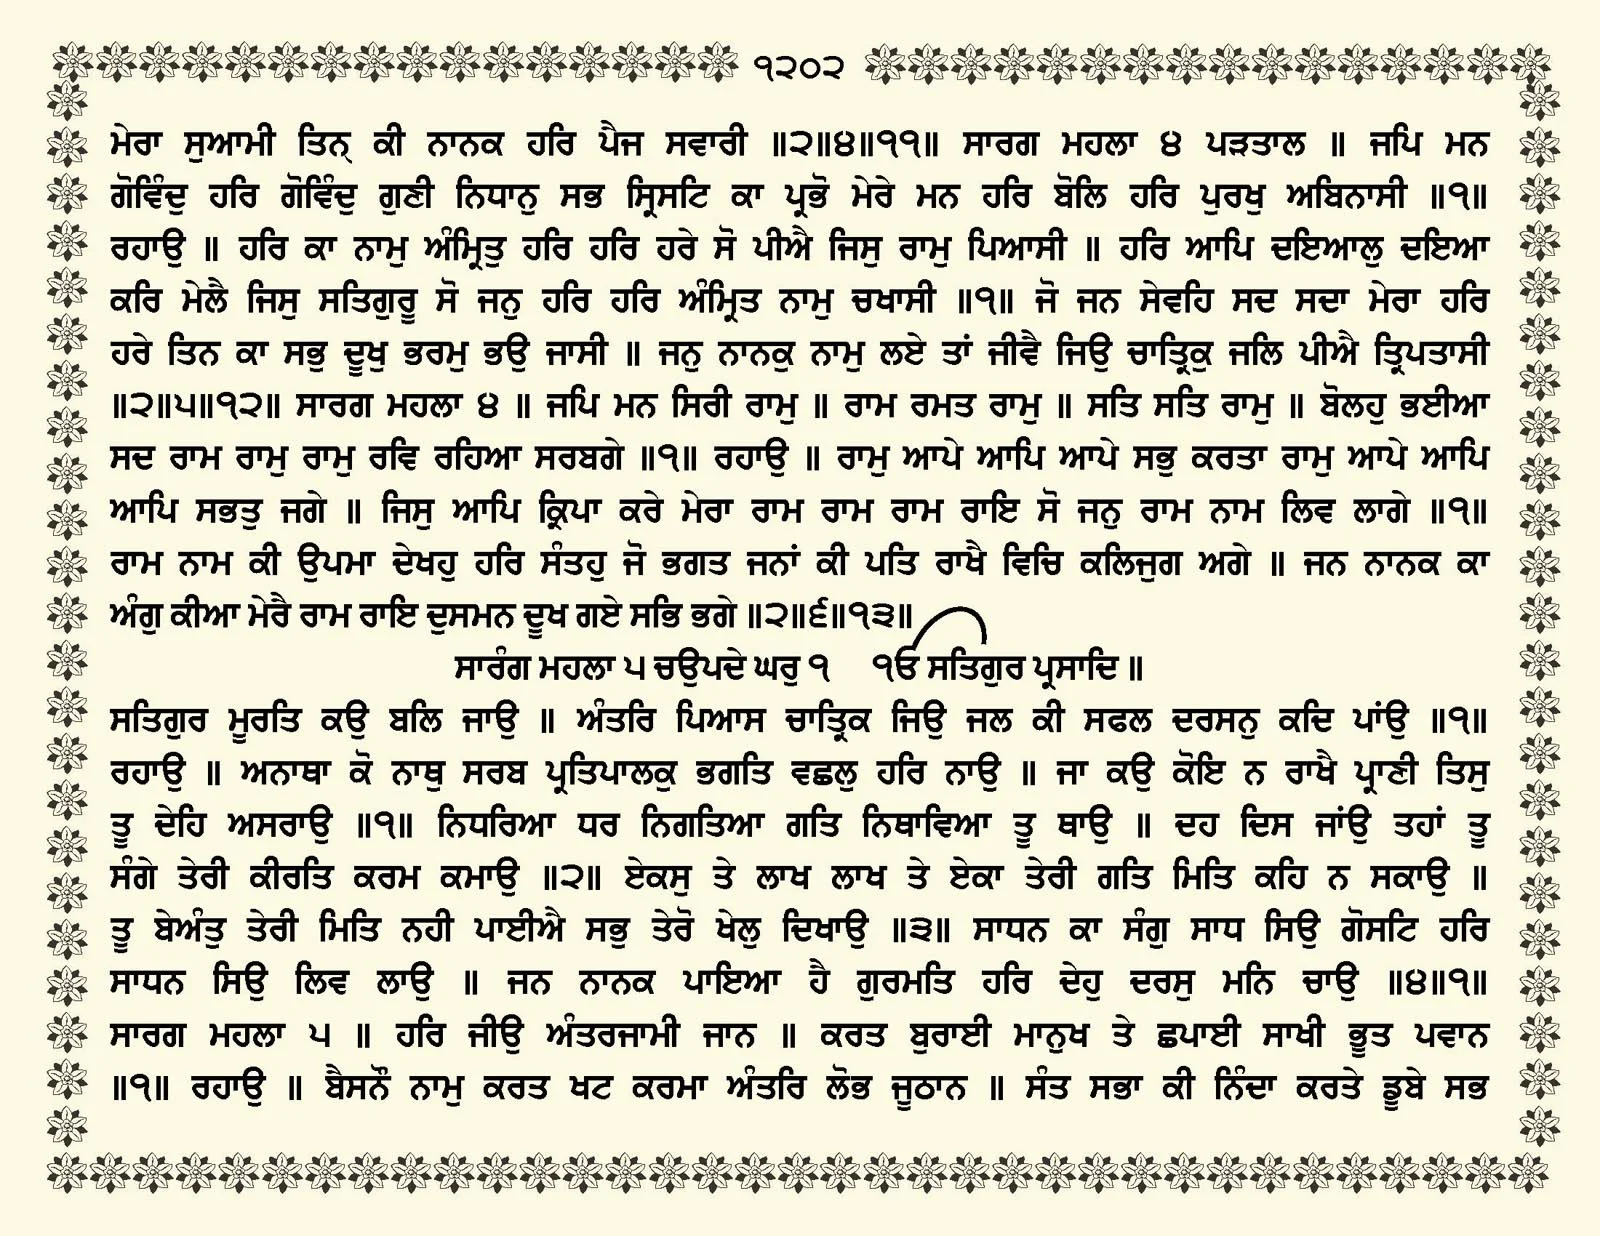 ੧੨੦੨
ਮੇਰਾ ਸੁਆਮੀ ਤਿਨ੍ ਕੀ ਨਾਨਕ ਹਰਿ ਪੈਜ ਸਵਾਰੀ ॥੨॥੪॥੧੧॥ ਸਾਰਗ ਮਹਲਾ ੪ ਪੜਤਾਲ ॥ ਜਪਿ ਮਨ
ਗੋਵਿੰਦੁ ਹਰਿ ਗੋਵਿੰਦੁ ਗੁਣੀ ਨਿਧਾਨੁ ਸਭ ਸ੍ਰਿਸਟਿ ਕਾ ਪ੍ਰਭੋ ਮੇਰੇ ਮਨ ਹਰਿ ਬੋਲਿ ਹਰਿ ਪੁਰਖੁ ਅਬਿਨਾਸੀ ॥੧॥
ਰਹਾਉ ॥ ਹਰਿ ਕਾ ਨਾਮੁ ਅੰਮ੍ਰਿਤੁ ਹਰਿ ਹਰਿ ਹਰੇ ਸੋ ਪੀਐ ਜਿਸੁ ਰਾਮੁ ਪਿਆਸੀ ॥ ਹਰਿ ਆਪਿ ਦਇਆਲੁ ਦਇਆ
ਕਰਿ ਮੇਲੈ ਜਿਸੁ ਸਤਿਗੁਰੂ ਸੋ ਜਨੁ ਹਰਿ ਹਰਿ ਅੰਮ੍ਰਿਤ ਨਾਮੁ ਚਖਾਸੀ ॥੧॥ ਜੋ ਜਨ ਸੇਵਹਿ ਸਦ ਸਦਾ ਮੇਰਾ ਹਰਿ
ਹਰੇ ਤਿਨ ਕਾ ਸਭੁ ਦੂਖੁ ਭਰਮੁ ਭਉ ਜਾਸੀ ॥ ਜਨੁ ਨਾਨਕੁ ਨਾਮੁ ਲਏ ਤਾਂ ਜੀਵੈ ਜਿਉ ਚਾਤ੍ਰਿਕੁ ਜਲਿ ਪੀਐ ਤ੍ਰਿਪਤਾਸੀ
॥੨॥੫॥੧੨॥ ਸਾਰਗ ਮਹਲਾ ੪ ॥ ਜਪਿ ਮਨ ਸਿਰੀ ਰਾਮੁ ॥ ਰਾਮ ਰਮਤ ਰਾਮੁ ॥ ਸਤਿ ਸਤਿ ਰਾਮੁ ॥ ਬੋਲਹੁ ਭਈਆ
ਸਦ ਰਾਮ ਰਾਮੁ ਰਾਮੁ ਰਵਿ ਰਹਿਆ ਸਰਬਗੇ ॥੧॥ ਰਹਾਉ ॥ ਰਾਮੁ ਆਪੇ ਆਪਿ ਆਪੇ ਸਭੁ ਕਰਤਾ ਰਾਮੁ ਆਪੇ ਆਪਿ
ਆਪਿ ਸਭਤੁ ਜਗੇ ॥ ਜਿਸੁ ਆਪਿ ਕ੍ਰਿਪਾ ਕਰੇ ਮੇਰਾ ਰਾਮ ਰਾਮ ਰਾਮ ਰਾਇ ਸੋ ਜਨੁ ਰਾਮ ਨਾਮ ਲਿਵ ਲਾਗੇ ॥੧॥
ਰਾਮ ਨਾਮ ਕੀ ਉਪਮਾ ਦੇਖਹੁ ਹਰਿ ਸੰਤਹੁ ਜੋ ਭਗਤ ਜਨਾਂ ਕੀ ਪਤਿ ਰਾਖੈ ਵਿਚਿ ਕਲਿਜੁਗ ਅਗੇ ॥ ਜਨ ਨਾਨਕ ਕਾ
ਅੰਗੁ ਕੀਆ ਮੇਰੈ ਰਾਮ ਰਾਇ ਦੁਸਮਨ ਦੂਖ ਗਏ ਸਭਿ ਭਗੇ ॥੨॥੬॥੧੩॥
ਸਾਰੰਗ ਮਹਲਾ ੫ ਚਉਪਦੇ ਘਰੁ ੧ ੴ ਸਤਿਗੁਰ ਪ੍ਰਸਾਦਿ ॥
ਸਤਿਗੁਰ ਮੂਰਤਿ ਕਉ ਬਲਿ ਜਾਉ ॥ ਅੰਤਰਿ ਪਿਆਸ ਚਾਤ੍ਰਿਕ ਜਿਉ ਜਲ ਕੀ ਸਫਲ ਦਰਸਨੁ ਕਦਿ ਪਾਂਉ ॥੧॥
ਰਹਾਉ ॥ ਅਨਾਥਾ ਕੋ ਨਾਥੁ ਸਰਬ ਪ੍ਰਤਿਪਾਲਕੁ ਭਗਤਿ ਵਛਲੁ ਹਰਿ ਨਾਉ ॥ ਜਾ ਕਉ ਕੋਇ ਨ ਰਾਖੈ ਪ੍ਰਾਣੀ ਤਿਸੁ
ਤੂ ਦੇਹਿ ਅਸਰਾਉ ॥੧॥ ਨਿਧਰਿਆ ਧਰ ਨਿਗਤਿਆ ਗਤਿ ਨਿਥਾਵਿਆ ਤੂ ਥਾਉ ॥ ਦਹ ਦਿਸ ਜਾਂਉ ਤਹਾਂ ਤੂ
ਸੰਗੇ ਤੇਰੀ ਕੀਰਤਿ ਕਰਮ ਕਮਾਉ ॥੨॥ ਏਕਸੁ ਤੇ ਲਾਖ ਲਾਖ ਤੇ ਏਕਾ ਤੇਰੀ ਗਤਿ ਮਿਤਿ ਕਹਿ ਨ ਸਕਾਉ ॥
ਤੂ ਬੇਅੰਤੁ ਤੇਰੀ ਮਿਤਿ ਨਹੀ ਪਾਈਐ ਸਭੁ ਤੇਰੋ ਖੇਲੁ ਦਿਖਾਉ ॥੩॥ ਸਾਧਨ ਕਾ ਸੰਗੁ ਸਾਧ ਸਿਉ ਗੋਸਟਿ ਹਰਿ
ਸਾਧਨ ਸਿਉ ਲਿਵ ਲਾਉ ॥ ਜਨ ਨਾਨਕ ਪਾਇਆ ਹੈ ਗੁਰਮਤਿ ਹਰਿ ਦੇਹੁ ਦਰਸੁ ਮਨਿ ਚਾਉ ॥੪॥੧॥
ਸਾਰਗ ਮਹਲਾ ੫ ॥ ਹਰਿ ਜੀਉ ਅੰਤਰਜਾਮੀ ਜਾਨ ॥ ਕਰਤ ਬੁਰਾਈ ਮਾਨੁਖ ਤੇ ਛਪਾਈ ਸਾਖੀ ਭੂਤ ਪਵਾਨ
॥੧॥ ਰਹਾਉ ॥ ਬੈਸਨੌ ਨਾਮੁ ਕਰਤ ਖਟ ਕਰਮਾ ਅੰਤਰਿ ਲੋਭ ਜੂਠਾਨ ॥ ਸੰਤ ਸਭਾ ਕੀ ਨਿੰਦਾ ਕਰਤੇ ਡੂਬੇ ਸਭ